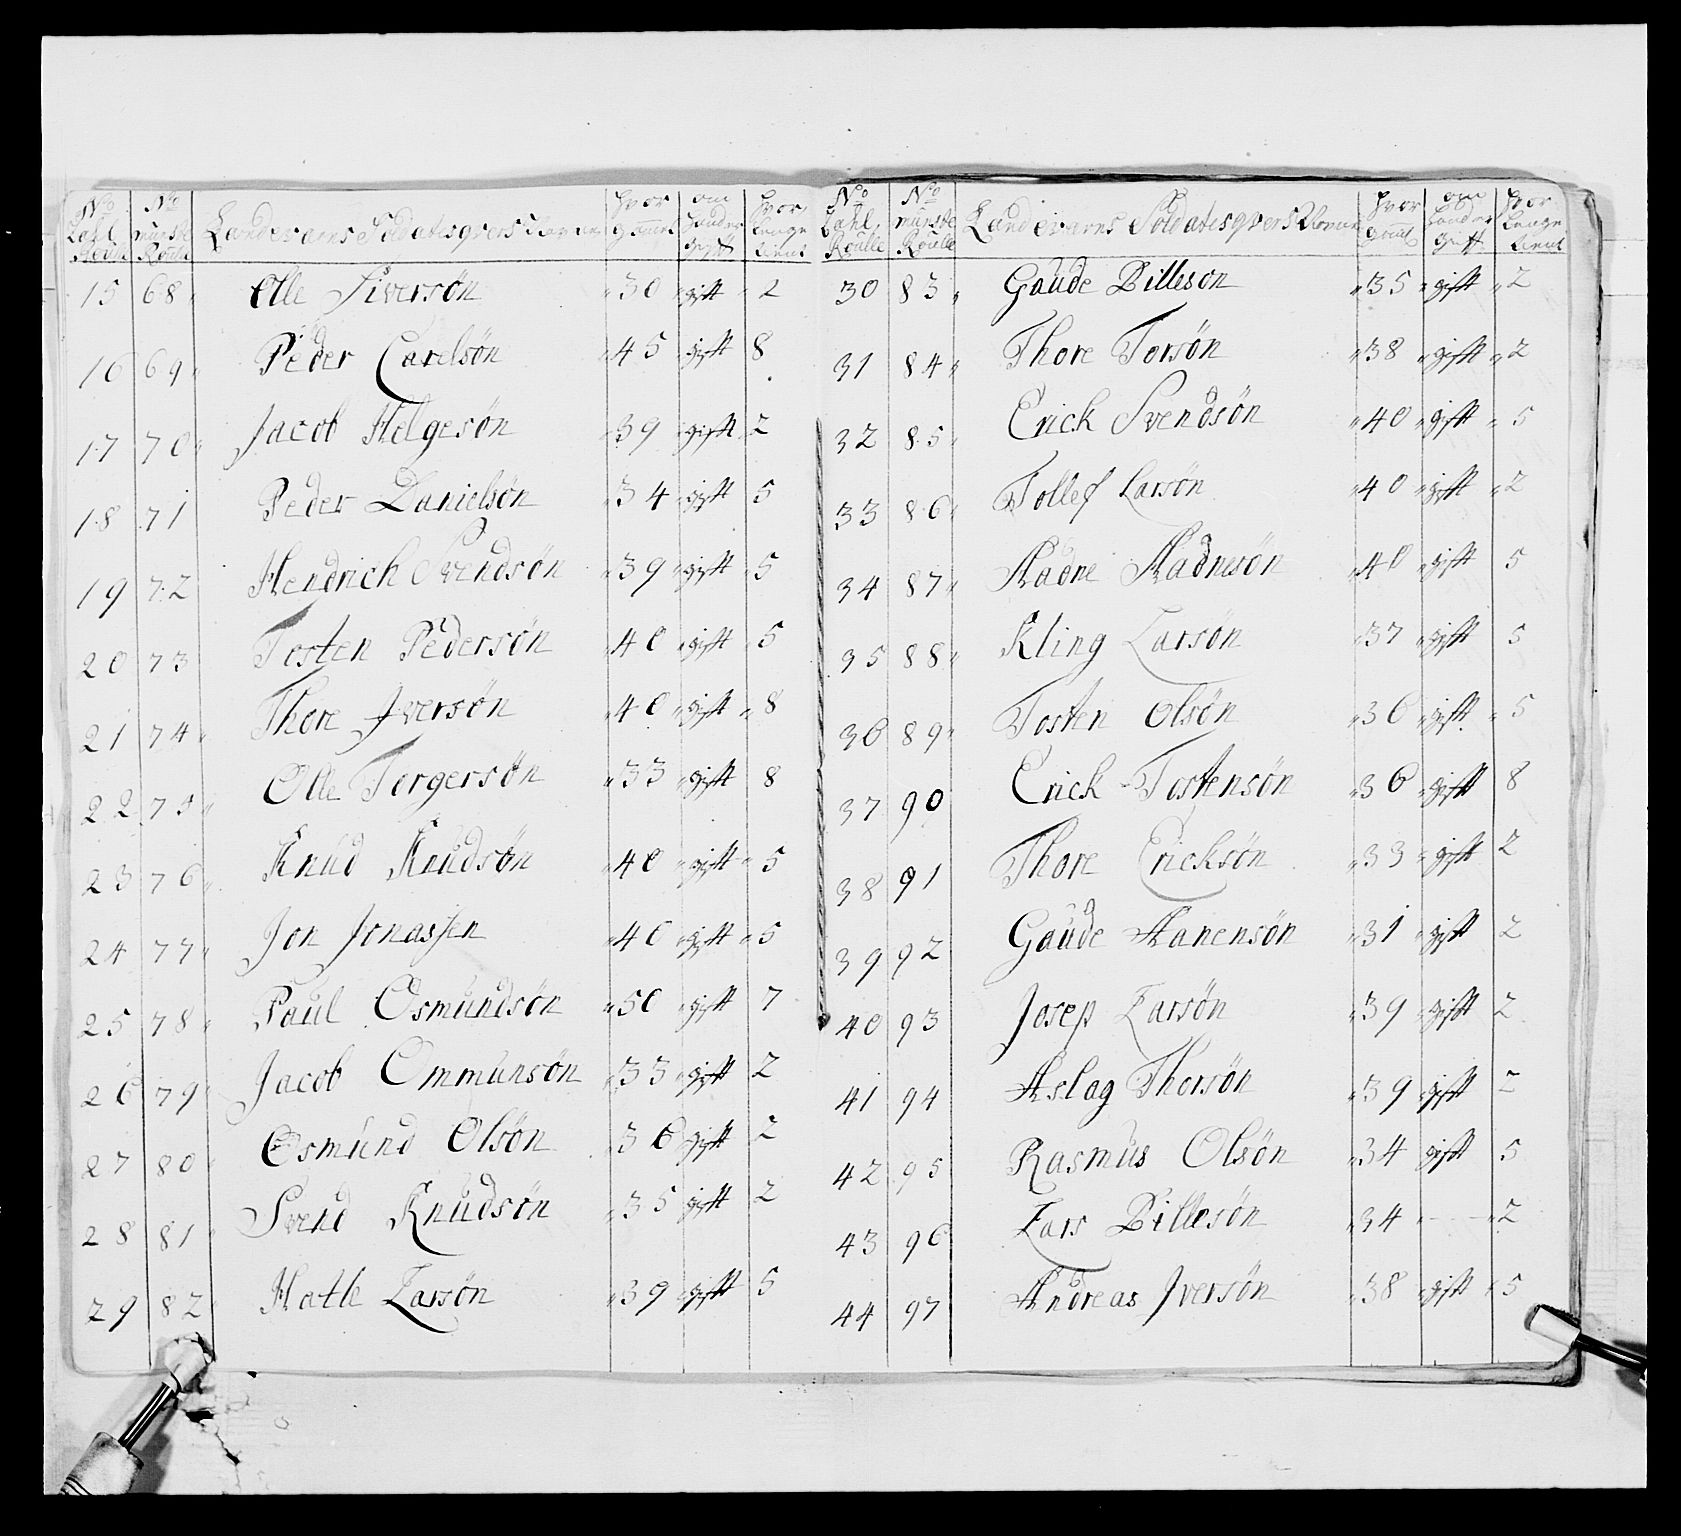 No Tahl Roulle | No münste Roulle | Landevarns Soldatesqvers Navne | hvor gaml | om hånd er gift | hvor lenge tient
15 68 Olle Siversøn 30 gift 2
16 69 Peder Carelsøn 45 gift 8
17 70 Jacob Helgesøn 39 gift 2
18 71 Peder Danielsøn 34 gift 5
19 72 Hendrich Svendsøn 39 gift 5
20 73 Tosten Pedersøn 40 gift 5
21 74 Thore Iversøn 40 gift 8
22 75 Olle Torgersøn 33 gift 8
23 76 Knud Knudsøn 40 gift 5
24 77 Jon Jonassen 40 gift 5
25 78 Paul Osmundsøn 50 gift 7
26 79 Jacob Ommunsøn 33 gift 2
27 80 Osmund Olsøn 36 gift 2
28 81 Svend Knudsøn 35 gift 2
29 82 Hatle Larsøn 39 gift 5
No Tahl Roulle | No münste Roulle | Landevarns Soldatesqvers Navne | hvor gaml | om hånd er gift | hvor lenge tient
30 83 Gaude Billesøn 35 gift 2
31 84 Thore Torsøn 38 gift 2
32 85 Erick Svendsøn 40 gift 5
33 86 Tollef Larsøn 40 gift 2
34 87 Aadne Aadnesøn 40 gift 5
35 88 Kling Larsøn 37 gift 5
36 89 Tosten Olsøn 36 gift 5
37 90 Erick Tostensøn 36 gift 8
38 91 Thore Ericksøn 33 gift 2
39 92 Gaude Aanensøn 31 gift 2
40 93 Josep Larsøn 39 gift 2
41 94 Aslag Thorsøn 39 gift 2
42 95 Rasmus Olsøn 34 gift 5
43 96 Lars Billesøn 34 - - - 2
44 97 Andreas Iversøn 38 gift 5